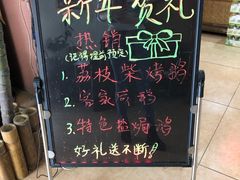 新年贺礼
热销
(记得提前预定)
1. 荔枝柴烤鹅
2. 客家荷鹅
3. 特色盐焗鸡
好礼送不断!